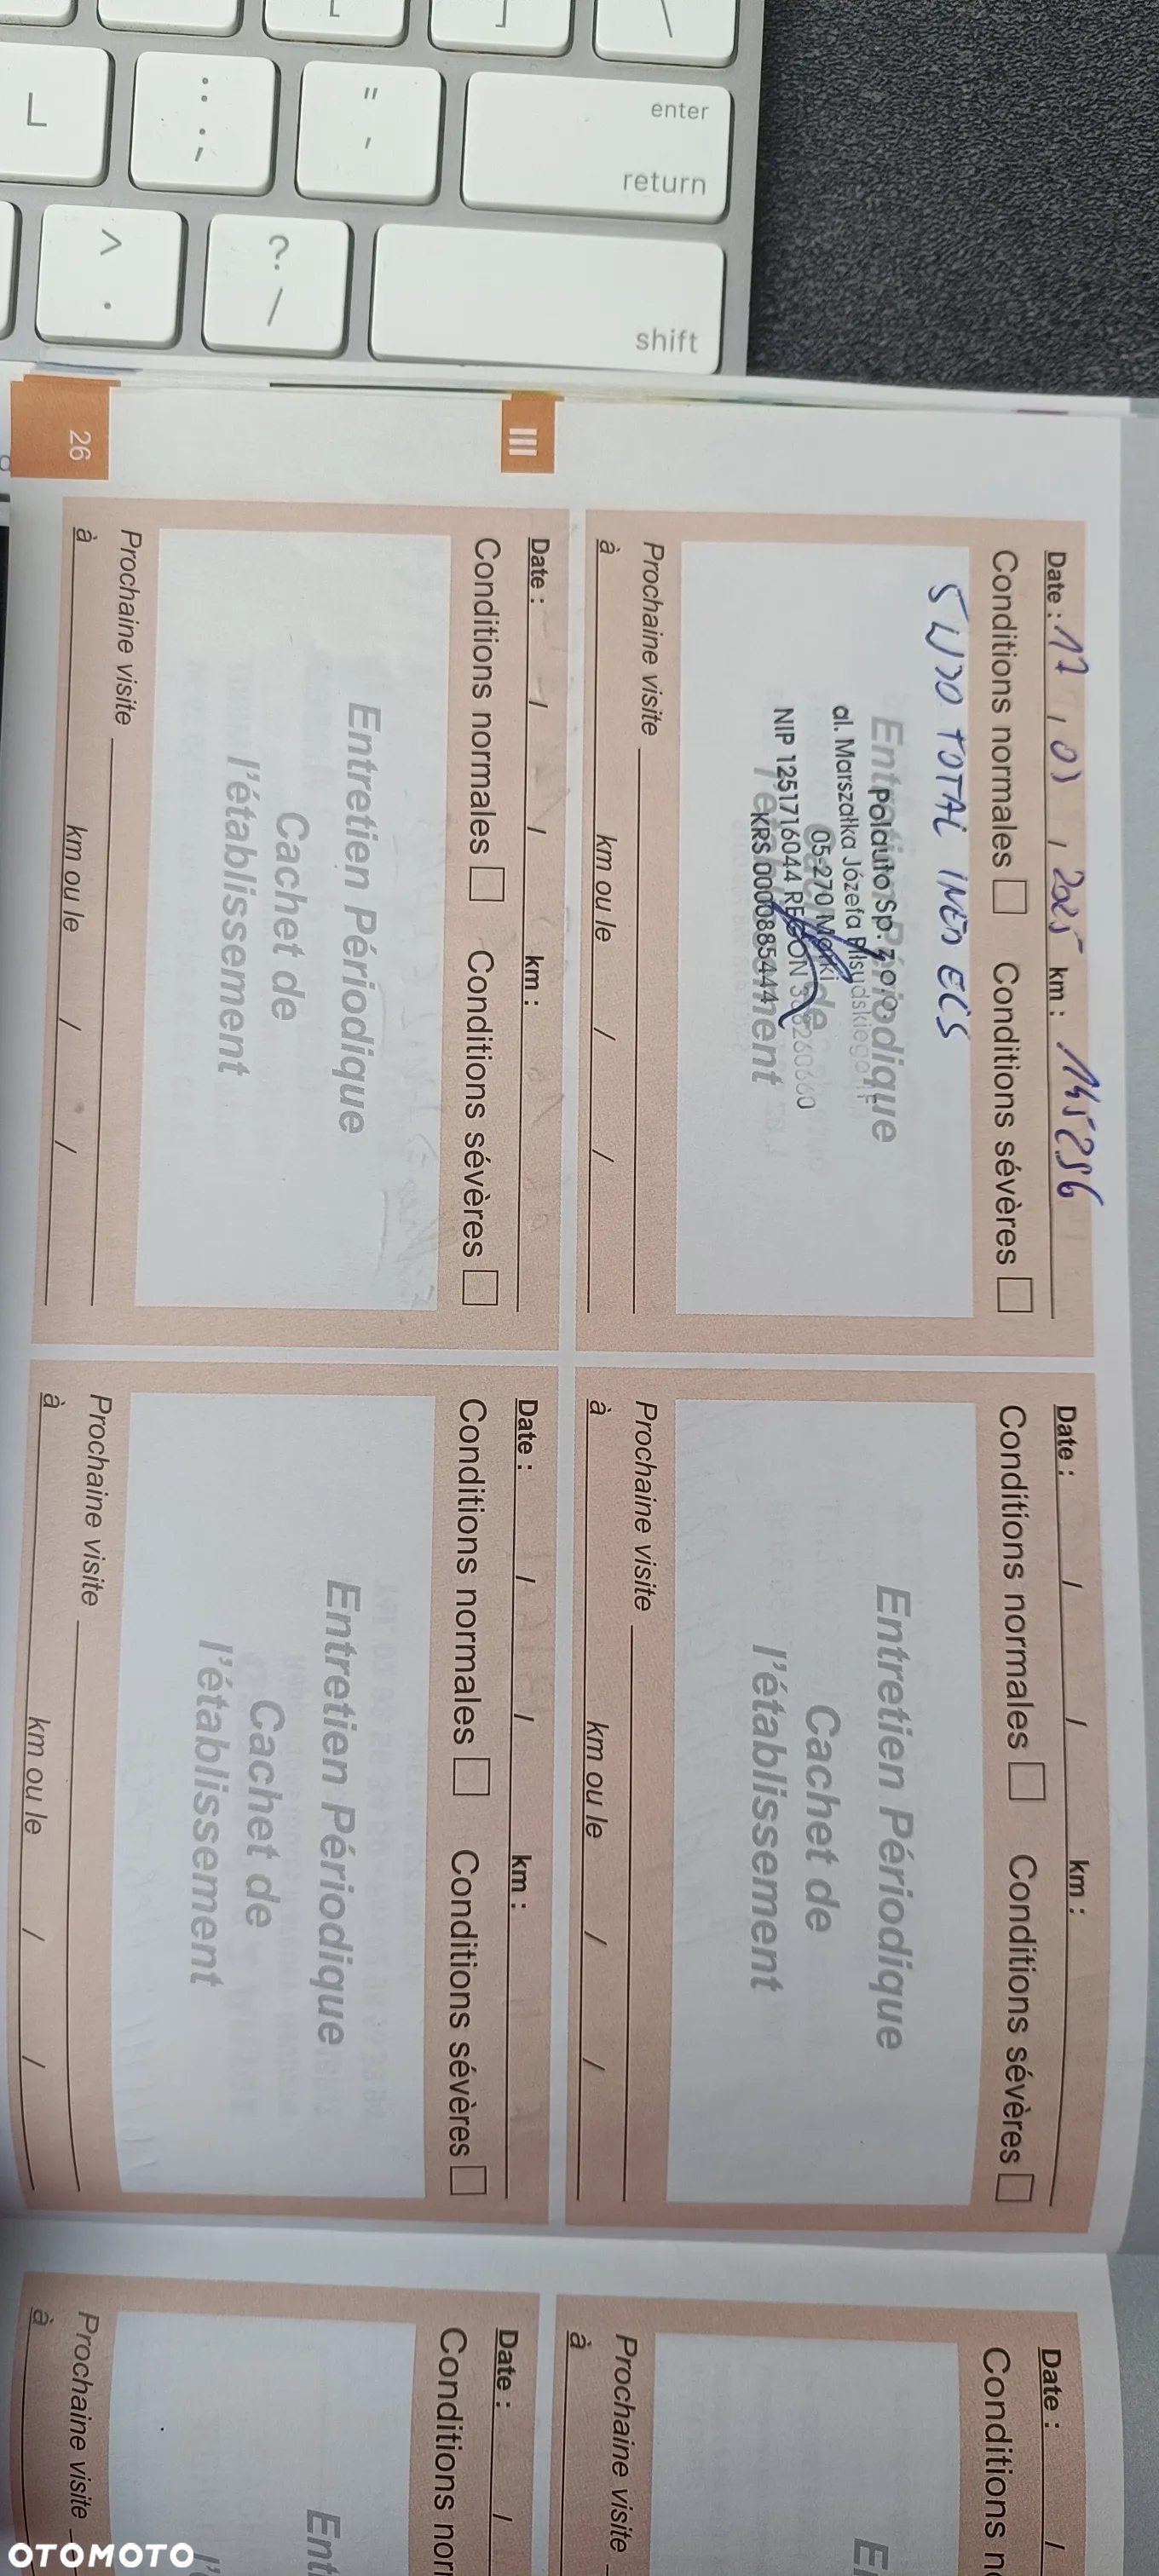 enter
return
shift
Date : 17 / 01 / 2025 km : 145256
Conditions normales Conditions sévères
5W30 TOTAL INEO ECS
Entretien Périodique
Polauto Sp. z o.o.
al. Marszałka Józefa Piłsudskiego
05-270 Marki
NIP 1251716044 REGON 338260360
KRS 0000885444
Prochaine visite
à km ou le / /
Date : / / km :
Conditions normales Conditions sévères
Entretien Périodique
Cachet de
l'établissement
Prochaine visite
à km ou le / /
III
Date : / / km :
Conditions normales Conditions sévères
Entretien Périodique
Cachet de
l'établissement
Prochaine visite
à km ou le / /
Date : / / km :
Conditions normales Conditions sévères
Entretien Périodique
Cachet de
l'établissement
Prochaine visite
à km ou le / /
26
Date : /
Conditions
Prochaine visite
à
Date : /
Conditions
Prochaine visite
à
OTOMOTO